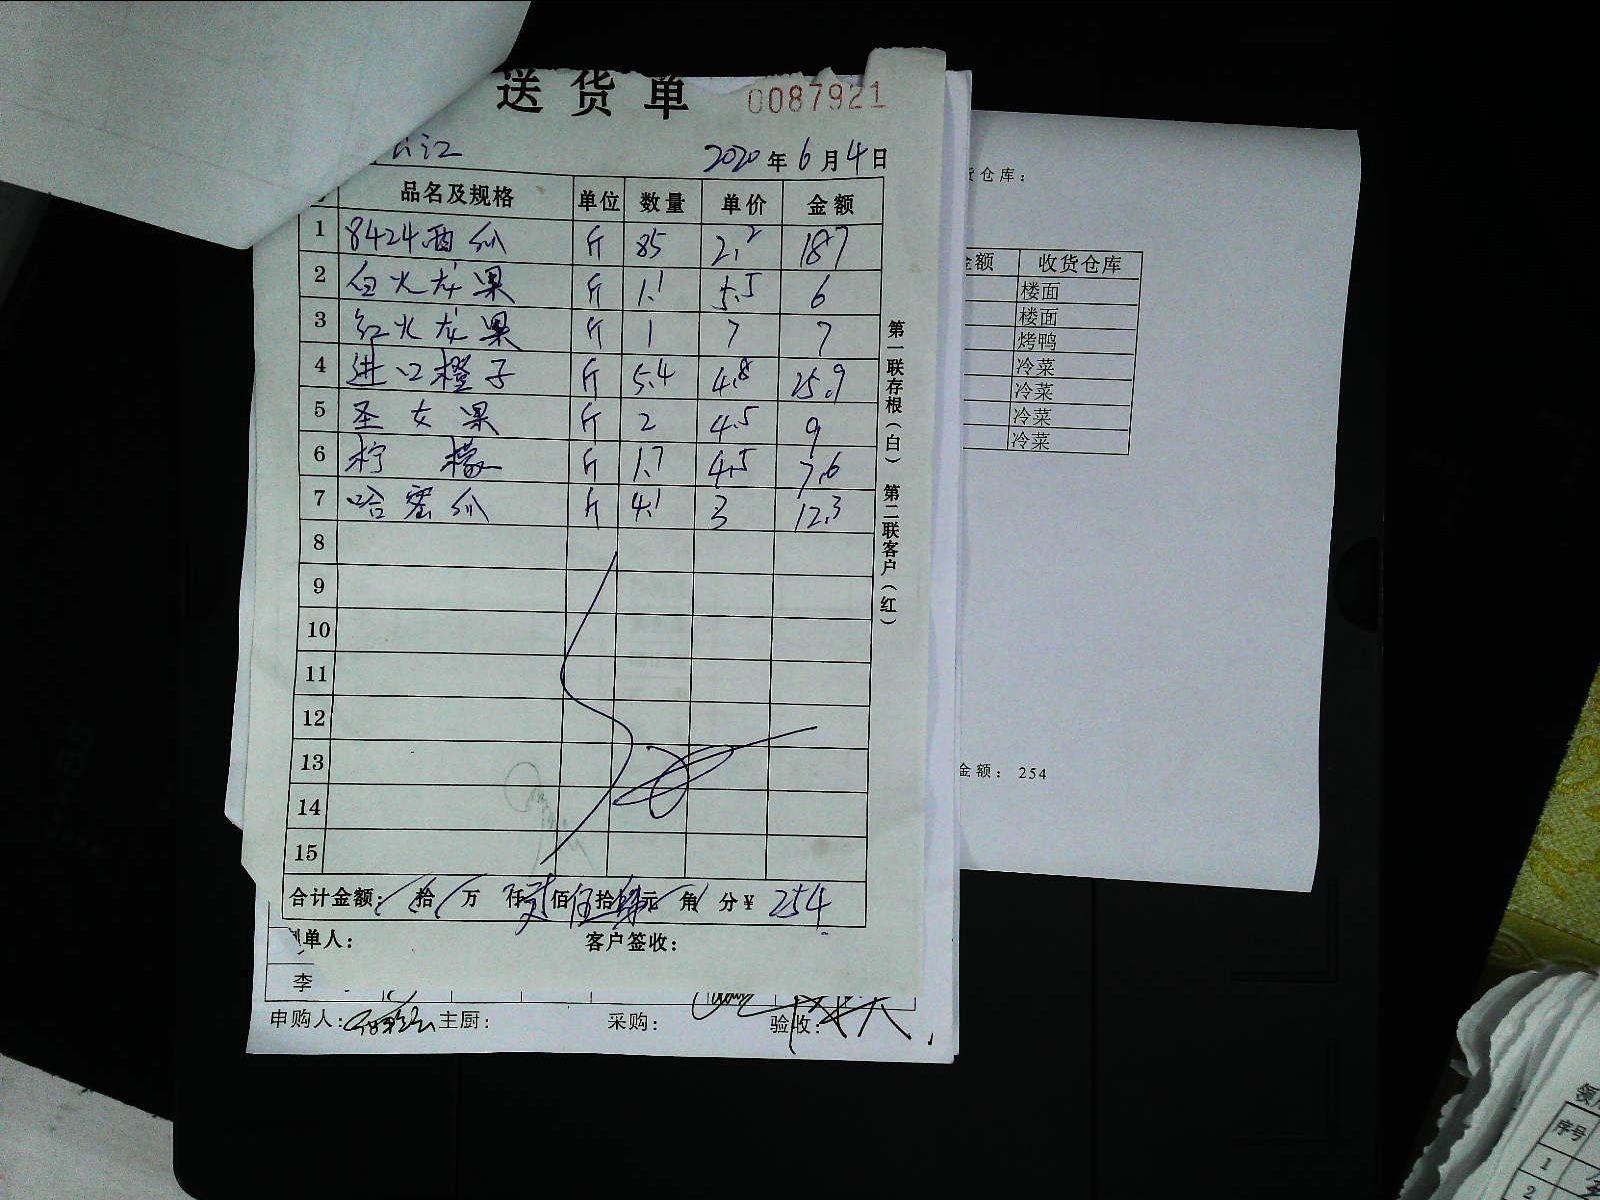 送货单 0087921
2020年6月4日
品名及规格 单位 数量 单价 金额
1 8424西瓜 斤 85 2.2 187
2 白火龙果 斤 1.1 5.5 6
3 红火龙果 斤 1 7 7
4 进口橙子 斤 5.4 4.8 25.9
5 圣女果 斤 2 4.5 9
6 柠檬 斤 1.7 4.5 7.6
7 哈密瓜 斤 4.1 3 12.3
8
9
10
11
12
13
14
15
合计金额: 拾 万 仟 贰佰伍拾肆元 角 分¥ 254
单人: 客户签收:
第一联存根(白) 第二联客户(红)
李
申购人: 主厨: 采购: 验收:
货仓库:
金额 收货仓库
楼面
楼面
烤鸭
冷菜
冷菜
冷菜
冷菜
金额: 254
序号
1
2